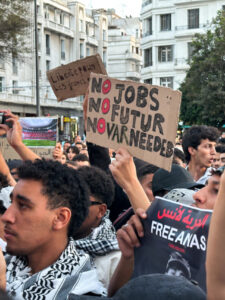 NO JOBS
NO FUTUR
NO VAR NEEDED
الحرية لأنس
FREE ANAS